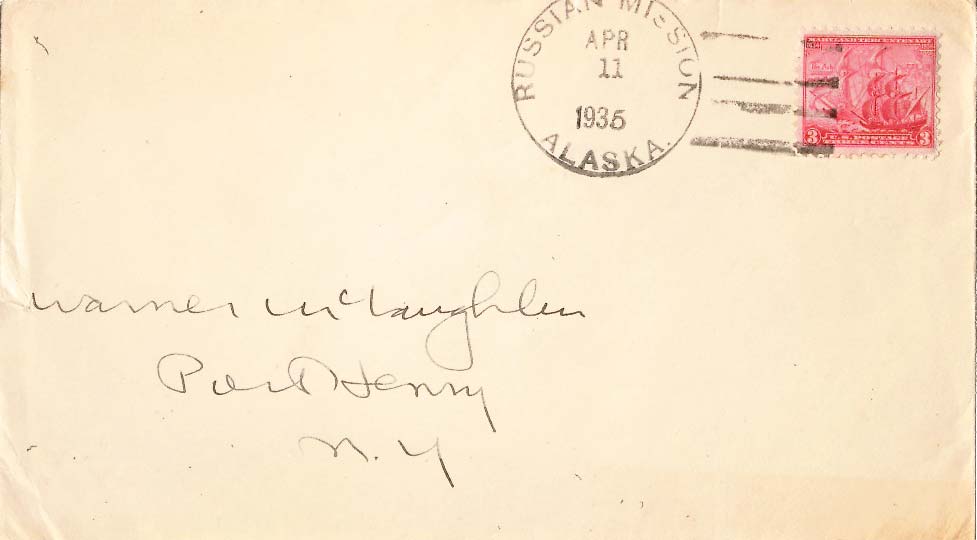 RUSSIAN MISSION
APR
11
1935
ALASKA.
MARYLAND TERCENTENARY
The Ark
3 U.S. POSTAGE 3
THREE CENTS
Warner McLaughlin
Port Henry
N.Y